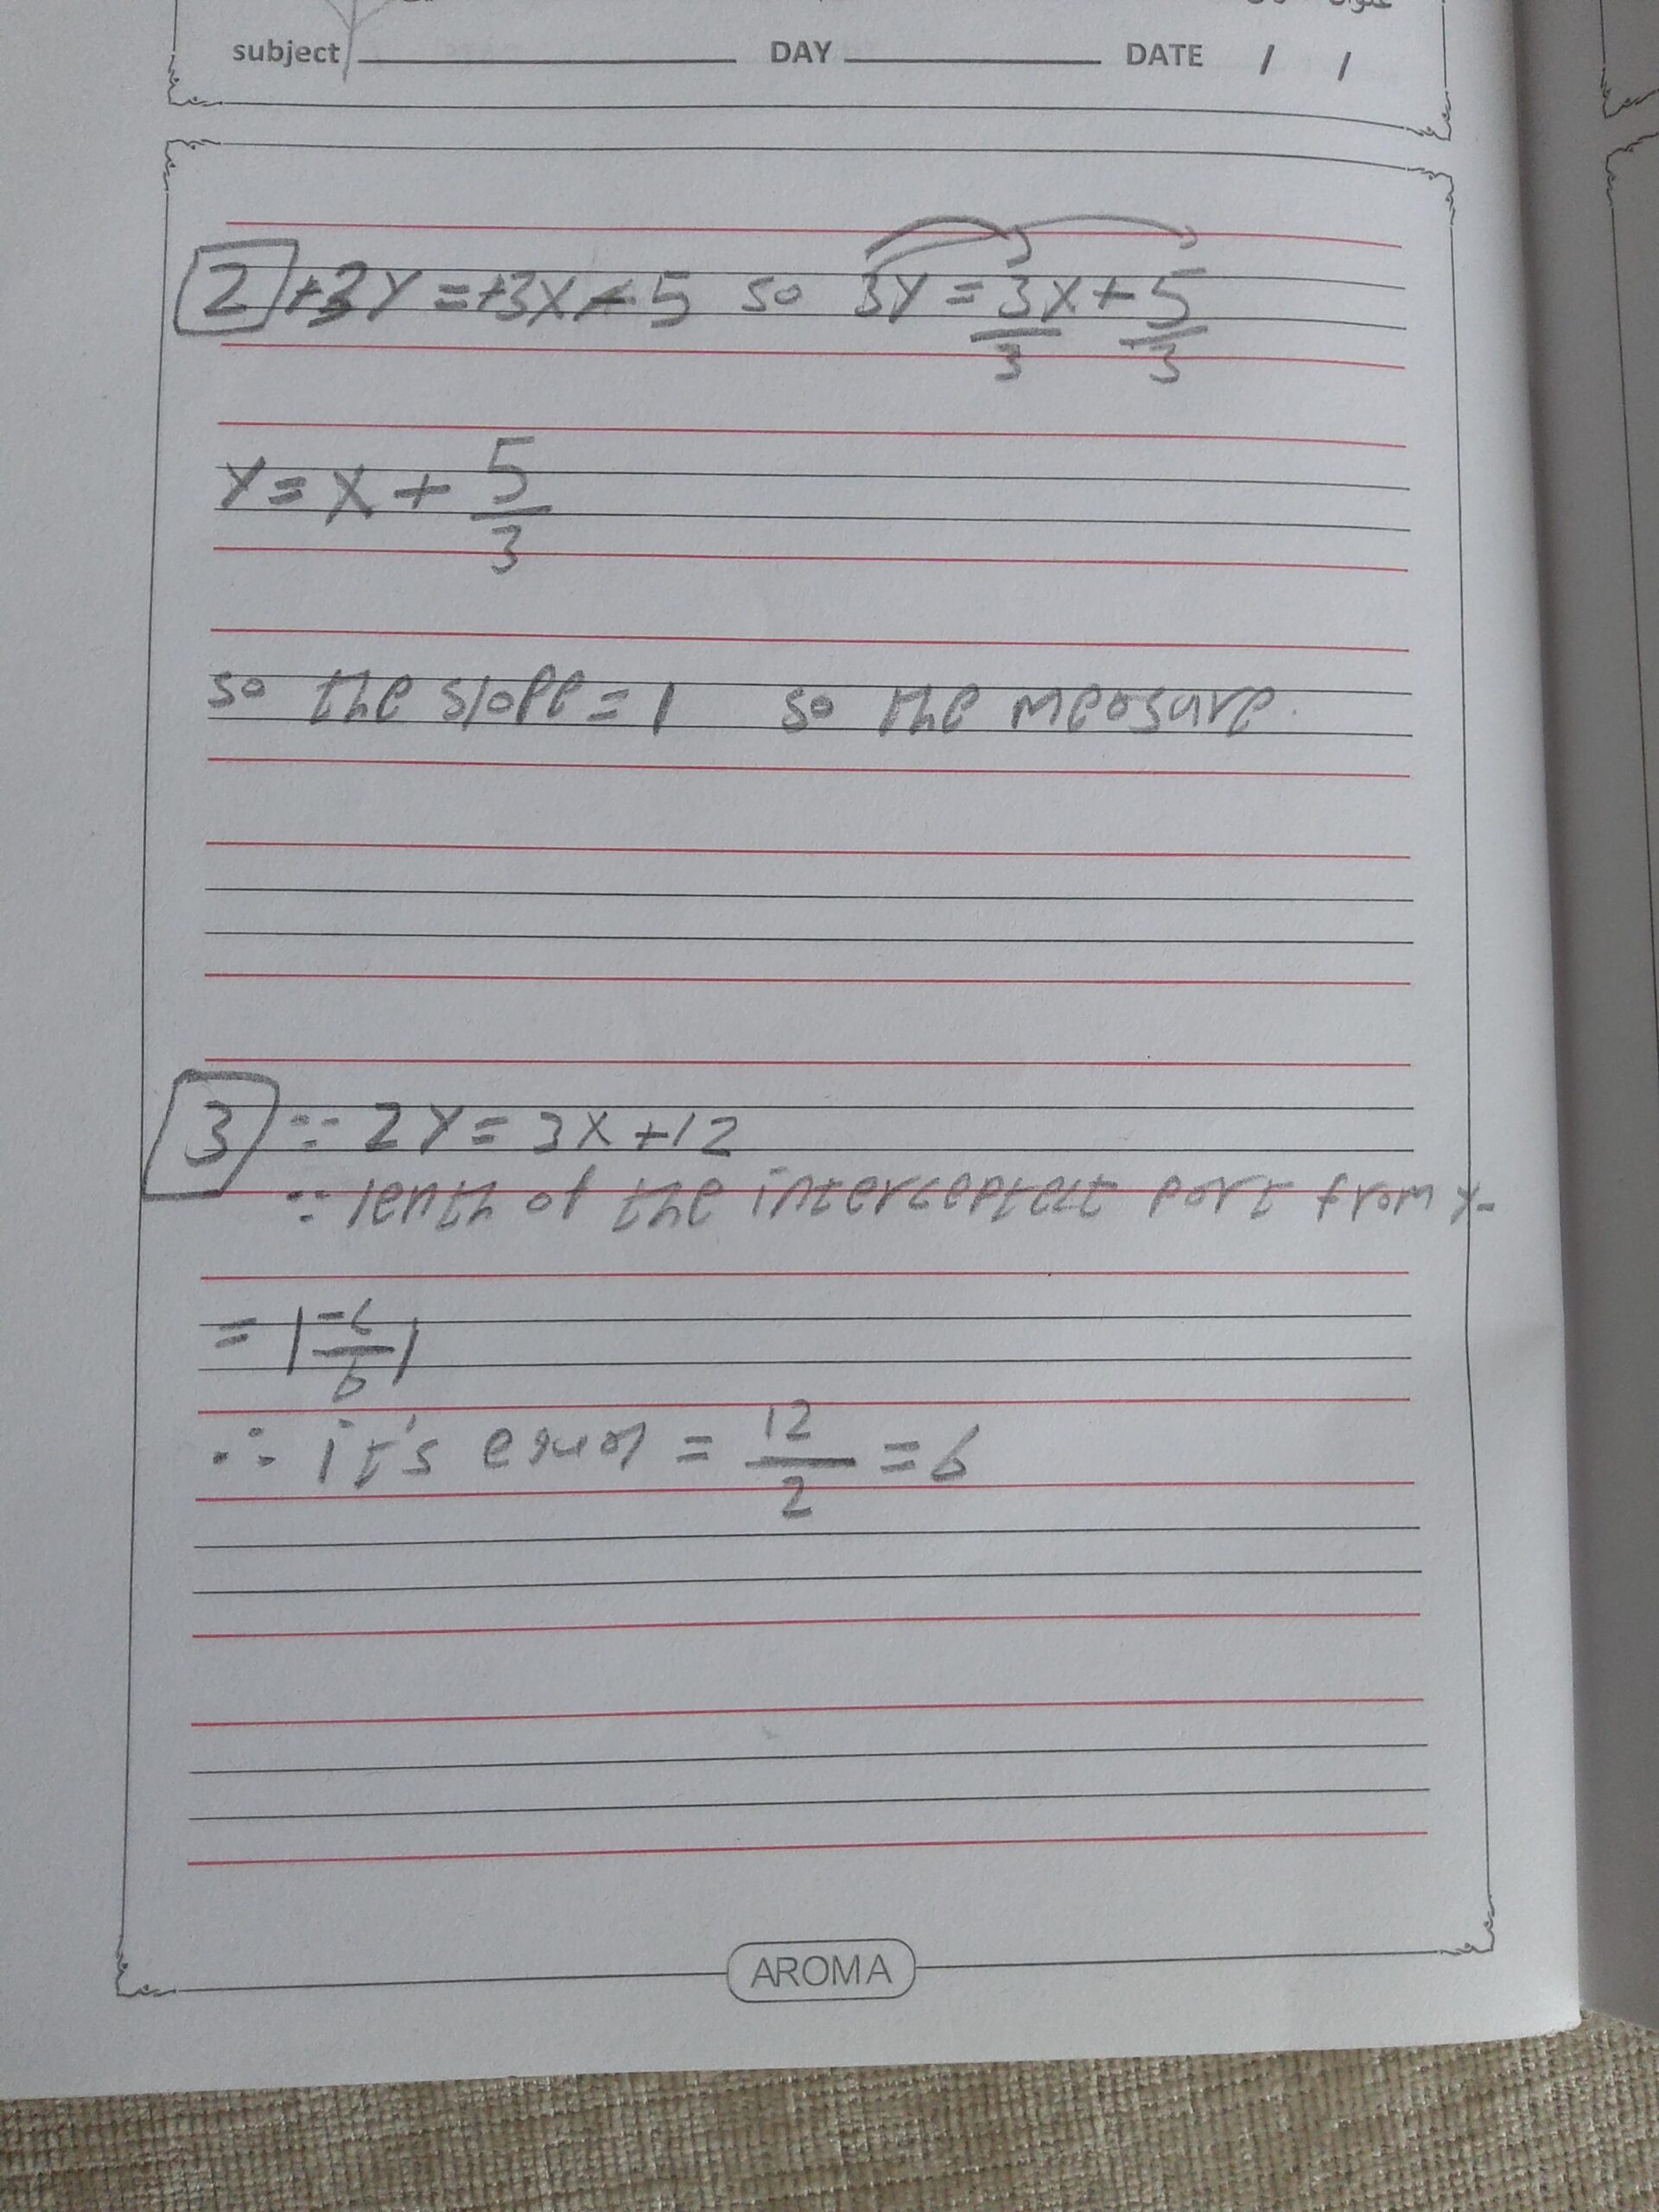 subject DAY DATE / /
2 +3Y=+3X+5 so 3Y=3X/3+5/3
Y=X+5/3
so the slope=1 so the measure.
3 ∵ 2Y=3X+12
∵ lenth of the intercepted part from y-
=|-c/b|
∴ it's = 12/2 =6
AROMA